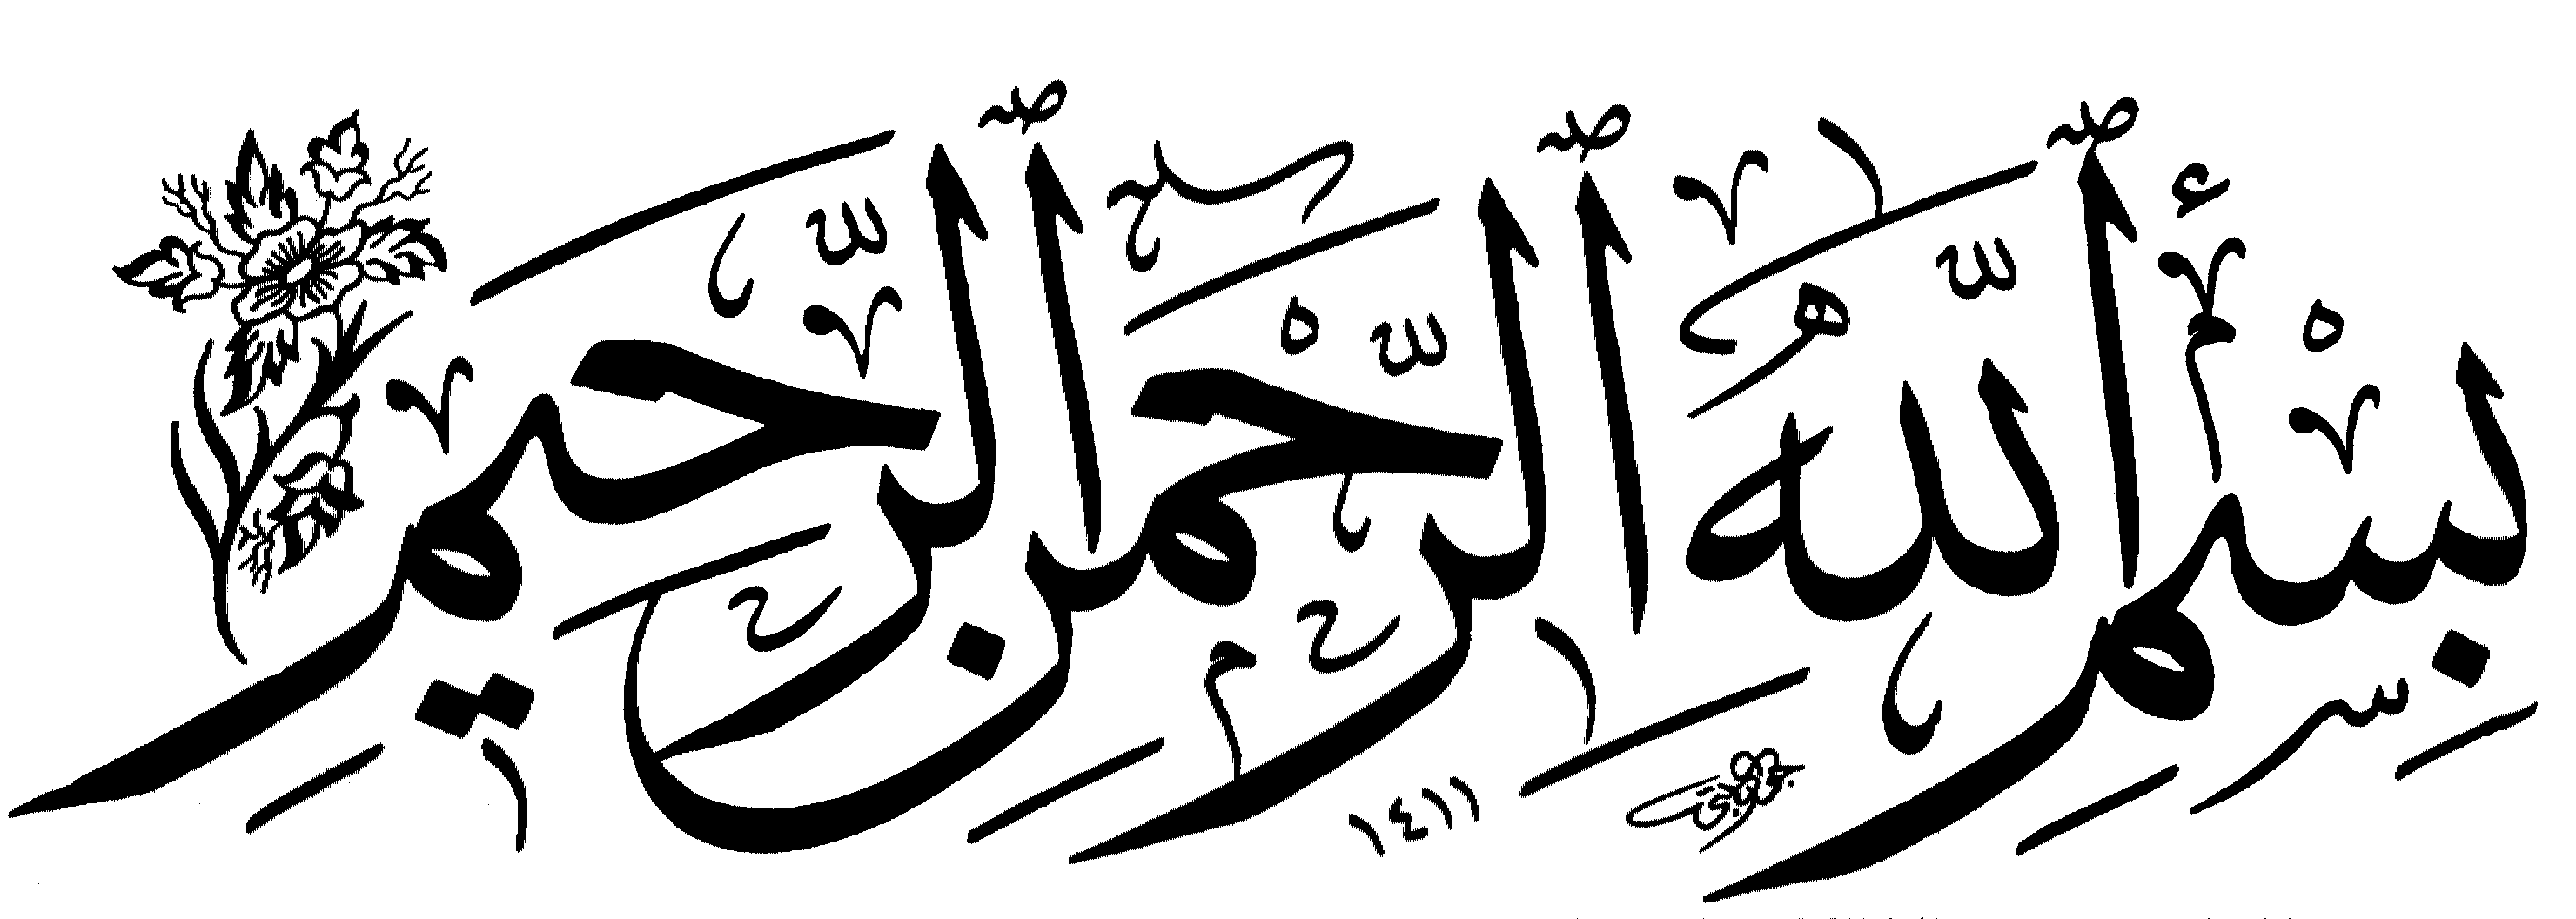 بِسْمِ اللّٰهِ الرَّحْمٰنِ الرَّحِيْمِ
١٤١١